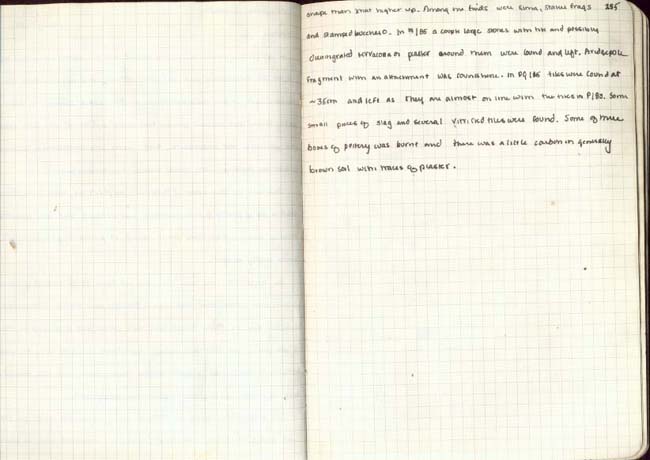 shape than that higher up. Among the finds were sima, statue frags 285
and stamped bucchero. In /86 a couple large stones with tile and possibly
disintegrated terracotta or plaster around them were found and left. A ridgepole
fragment with an attachment was found here. In PQ/86 tiles were found at
~35cm and left as they are almost on line with the tiles in P/80. Some
small pieces of slag and several vitrified tiles were found. Some of three
boxes of pottery was burnt and there was a little carbon in generally
brown soil with traces of plaster.